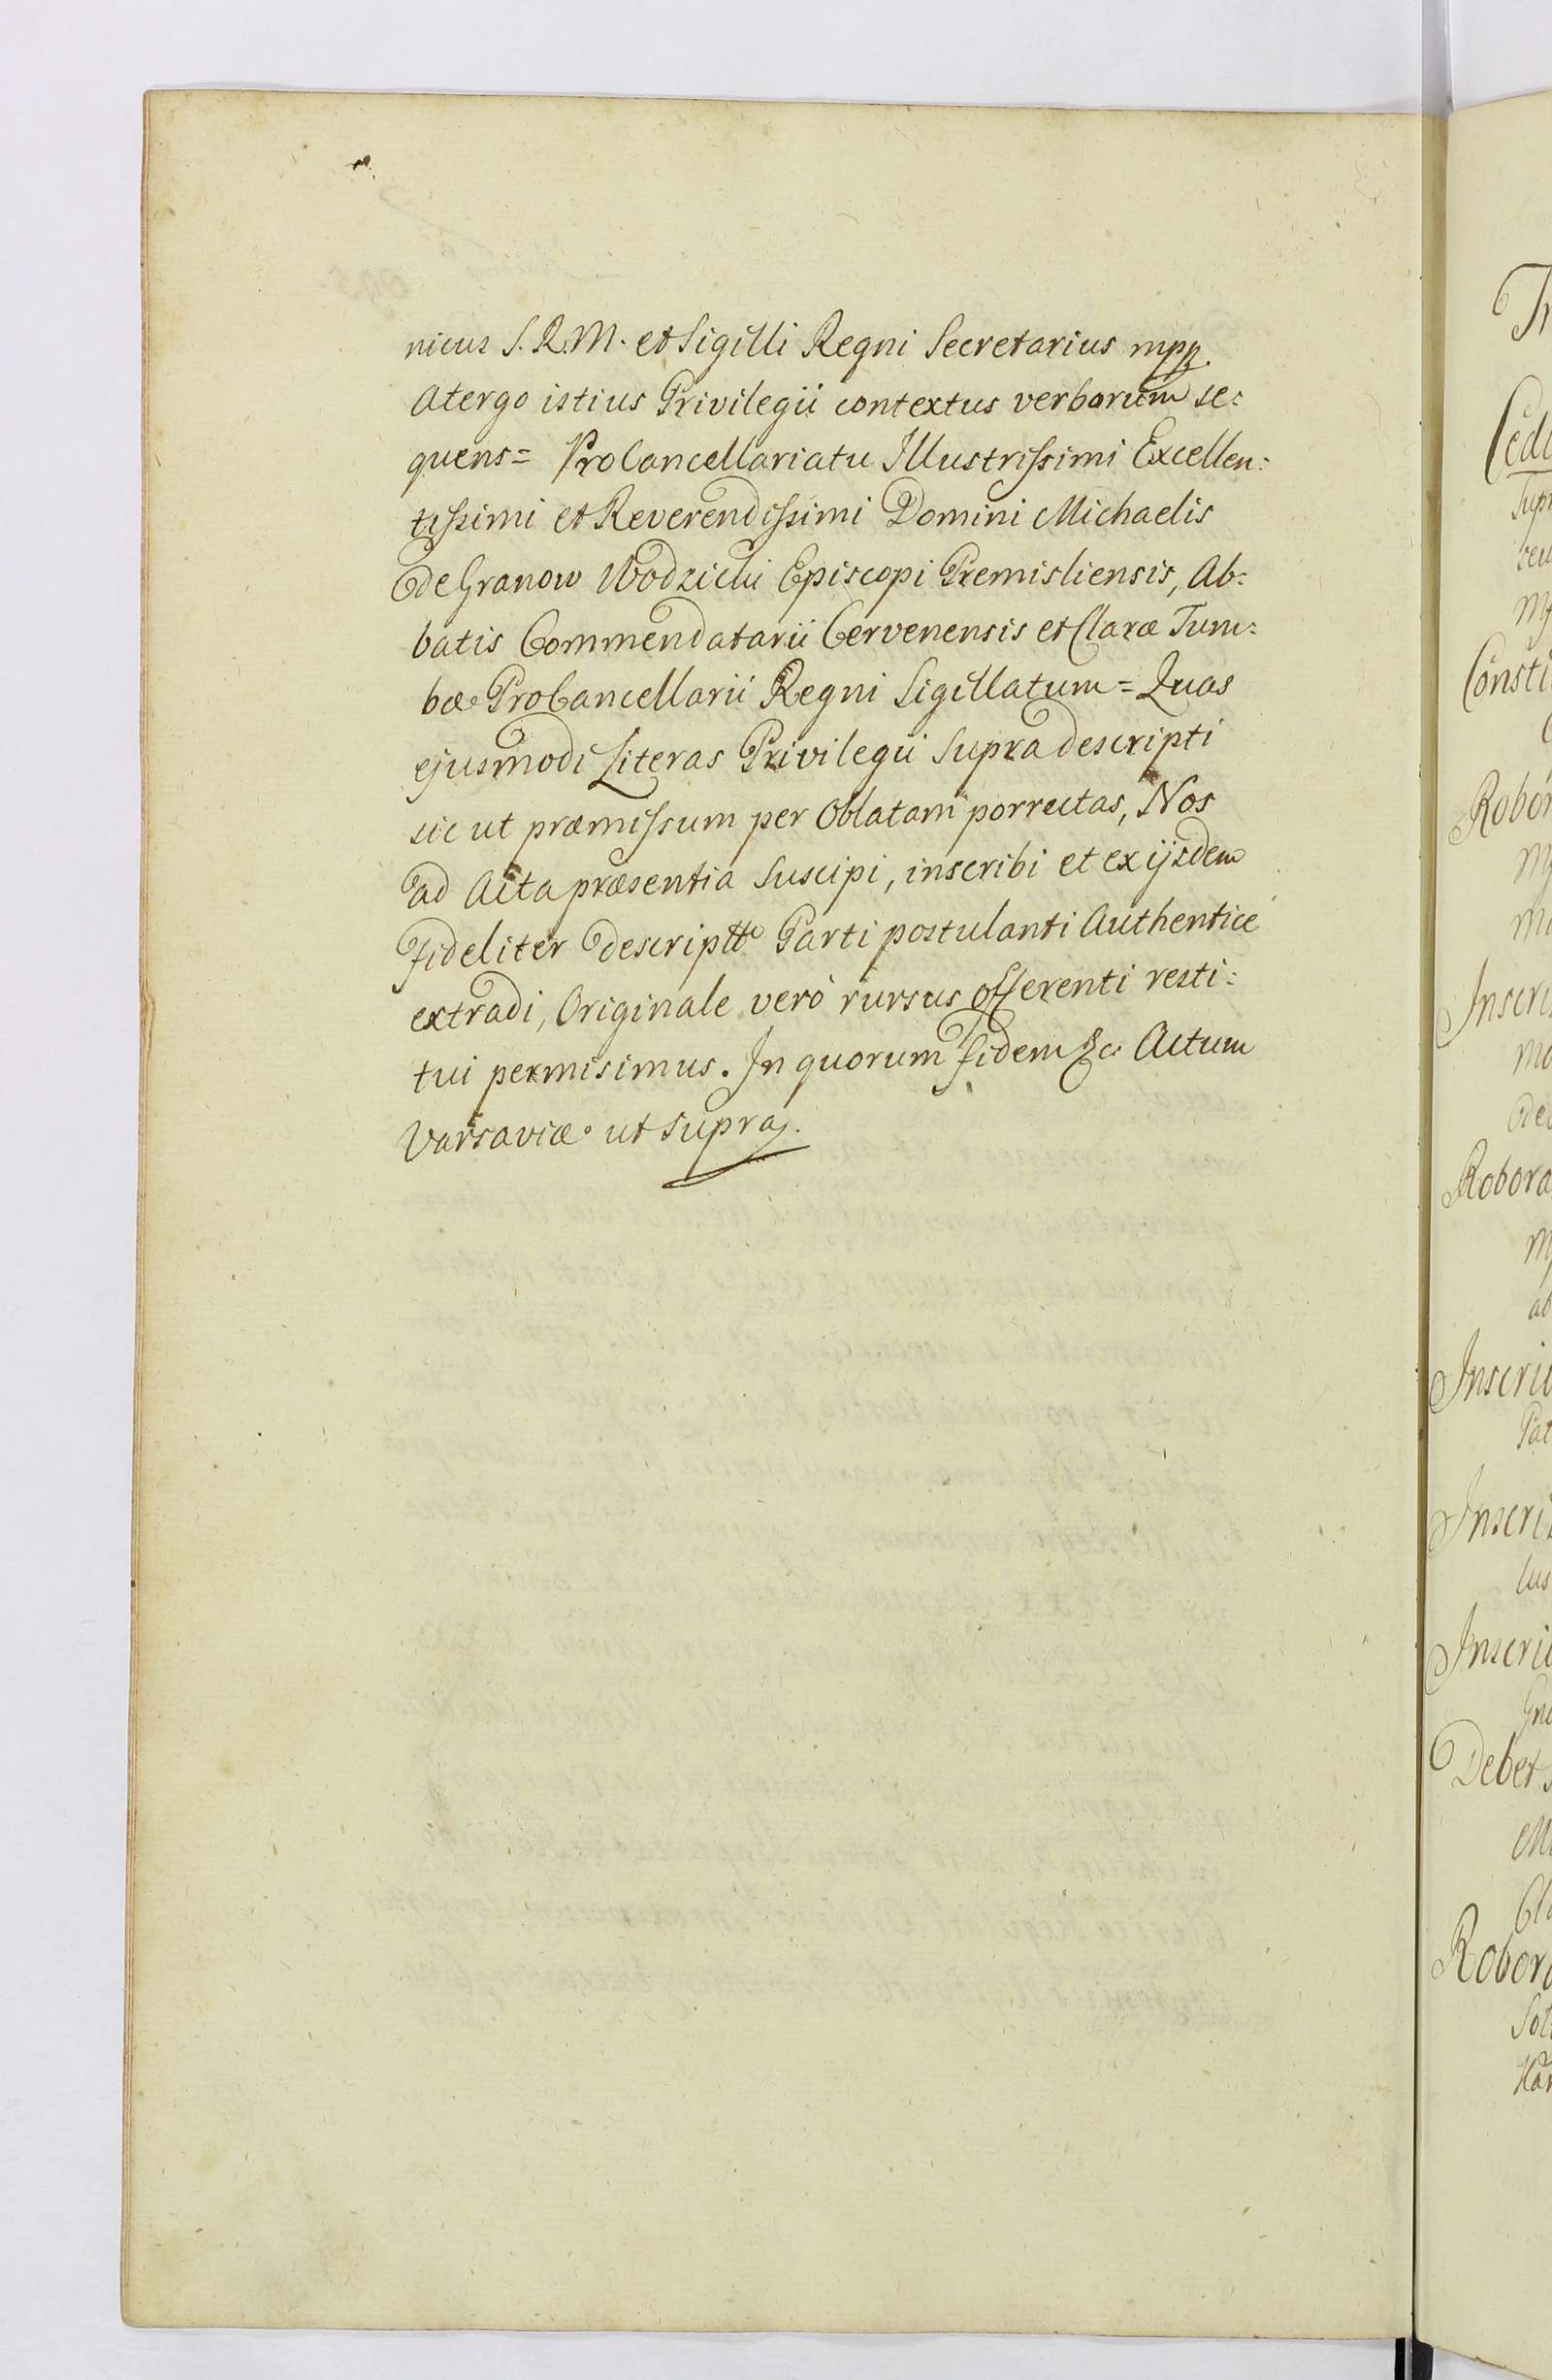 nicus S. R. M. et Sigilli Regni Secretarius mpp.
Atergo istius Privilegii contextus verborum se:
quens = ProCancellariatu Illustrissimi Excellen:
tissimi et Reverendissimi Domini Michaelis
de Granow Wodzicki Episcopi Premisliensis, Ab:
batis Commendatarii Cervenensis et Claræ Tum:
bæ ProCancellarii Regni Sigillatum = Quas
ejusmodi Literas Privilegii Supra descripti
sic ut præmissum per Oblatam porrectas, Nos
ad Acta præsentia Suscipi, inscribi et ex ijsdem
fideliter descriptte Parti postulanti Authenticè
extradi, Originale verò rursus offerenti resti:
tui permisimus. In quorum fidem &c. Actum
Varsaviæ ut supra.
Tr
Cedi
Supr
seu
Consti
Robor
Inscri
mo
ded
Robora
ab
Inscri
Pat
Inscri
lus
Inscri
Debet
Robora
Sol